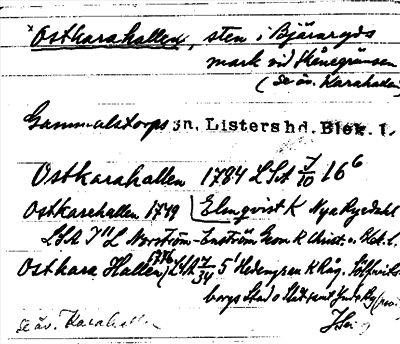 Ostkarahallen, sten i Bjäraryds
mark vid Skånegränsen
(se äv. Karahallen)
Gammalstorps sn. Listers hd. Blek. l.
Ostkarahallen 1784 LSA 16⁶
Ostkarehallen 1749 Elmqvist K Nya Ryedahl
LSA Norström-Enström Geom K Christ. o. Blek. l.
Ostkara Hallen 1776 LSA 5 Hedengran K Råg.
borgs
se äv. Karahallen